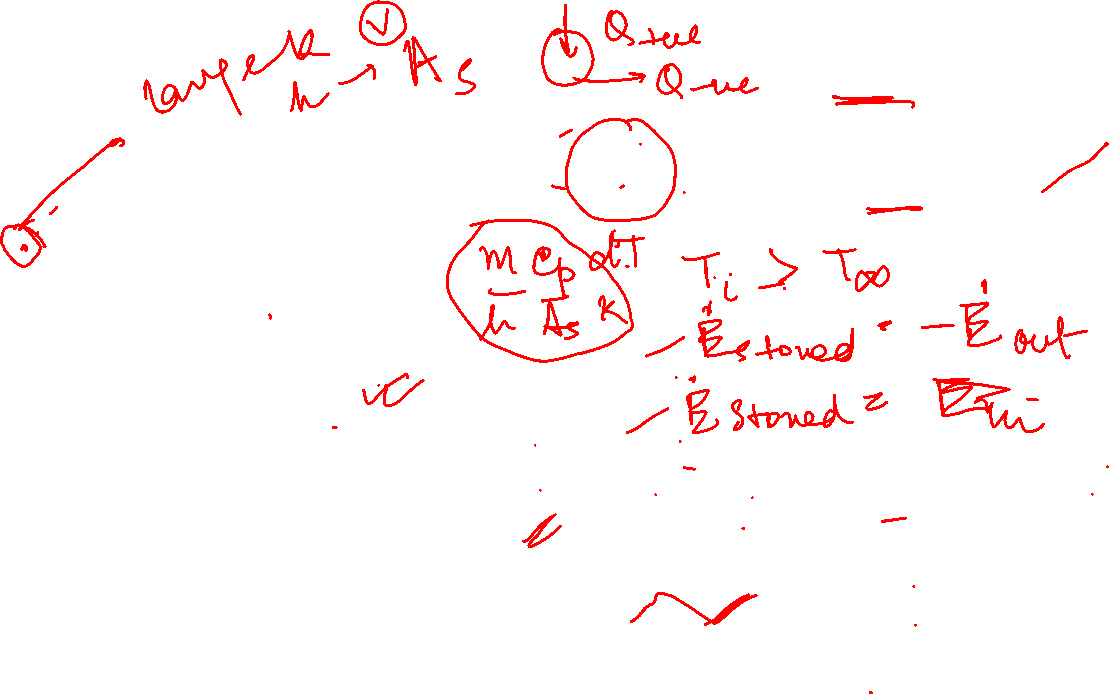 large k
h → As
V
Q +ve
Q -ve
m Cp dT
h As k
Ti > T∞
Ėstored = -Ėout
Ėstored = Ein